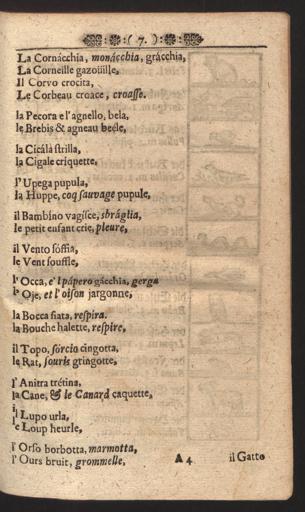 ( 7. )
La Cornácchia, monácchia, grácchia,
La Corneille gazoüille,
Il Corvo crocita,
Le Corbeau croace, croasse.
la Pecora e l'agnello, bela,
le Brebis & agneau beęle,
la Cicála strilla,
la Cigale criquette,
l'Upega pupula,
la Huppe, coq sauvage pupule,
il Bambíno vagísce, sbráglia,
le petit enfant crie, pleure,
il Vento sóffia,
le Vent souffle,
l'Occa, e'l pápero gácchia, gerga
l'Oje, et l'oison jargonne,
la Bocca fiata, respira.
la Bouche halette, respire,
il Topo, sórcio cingotta,
le Rat, souris gringotte,
l'Anitra trétina,
la Cane, & le Canard caquette,
il Lupo urla,
le Loup heurle,
l'Orso borbotta, marmotta,
l'Ours bruit, grommelle,
A 4 il Gatto